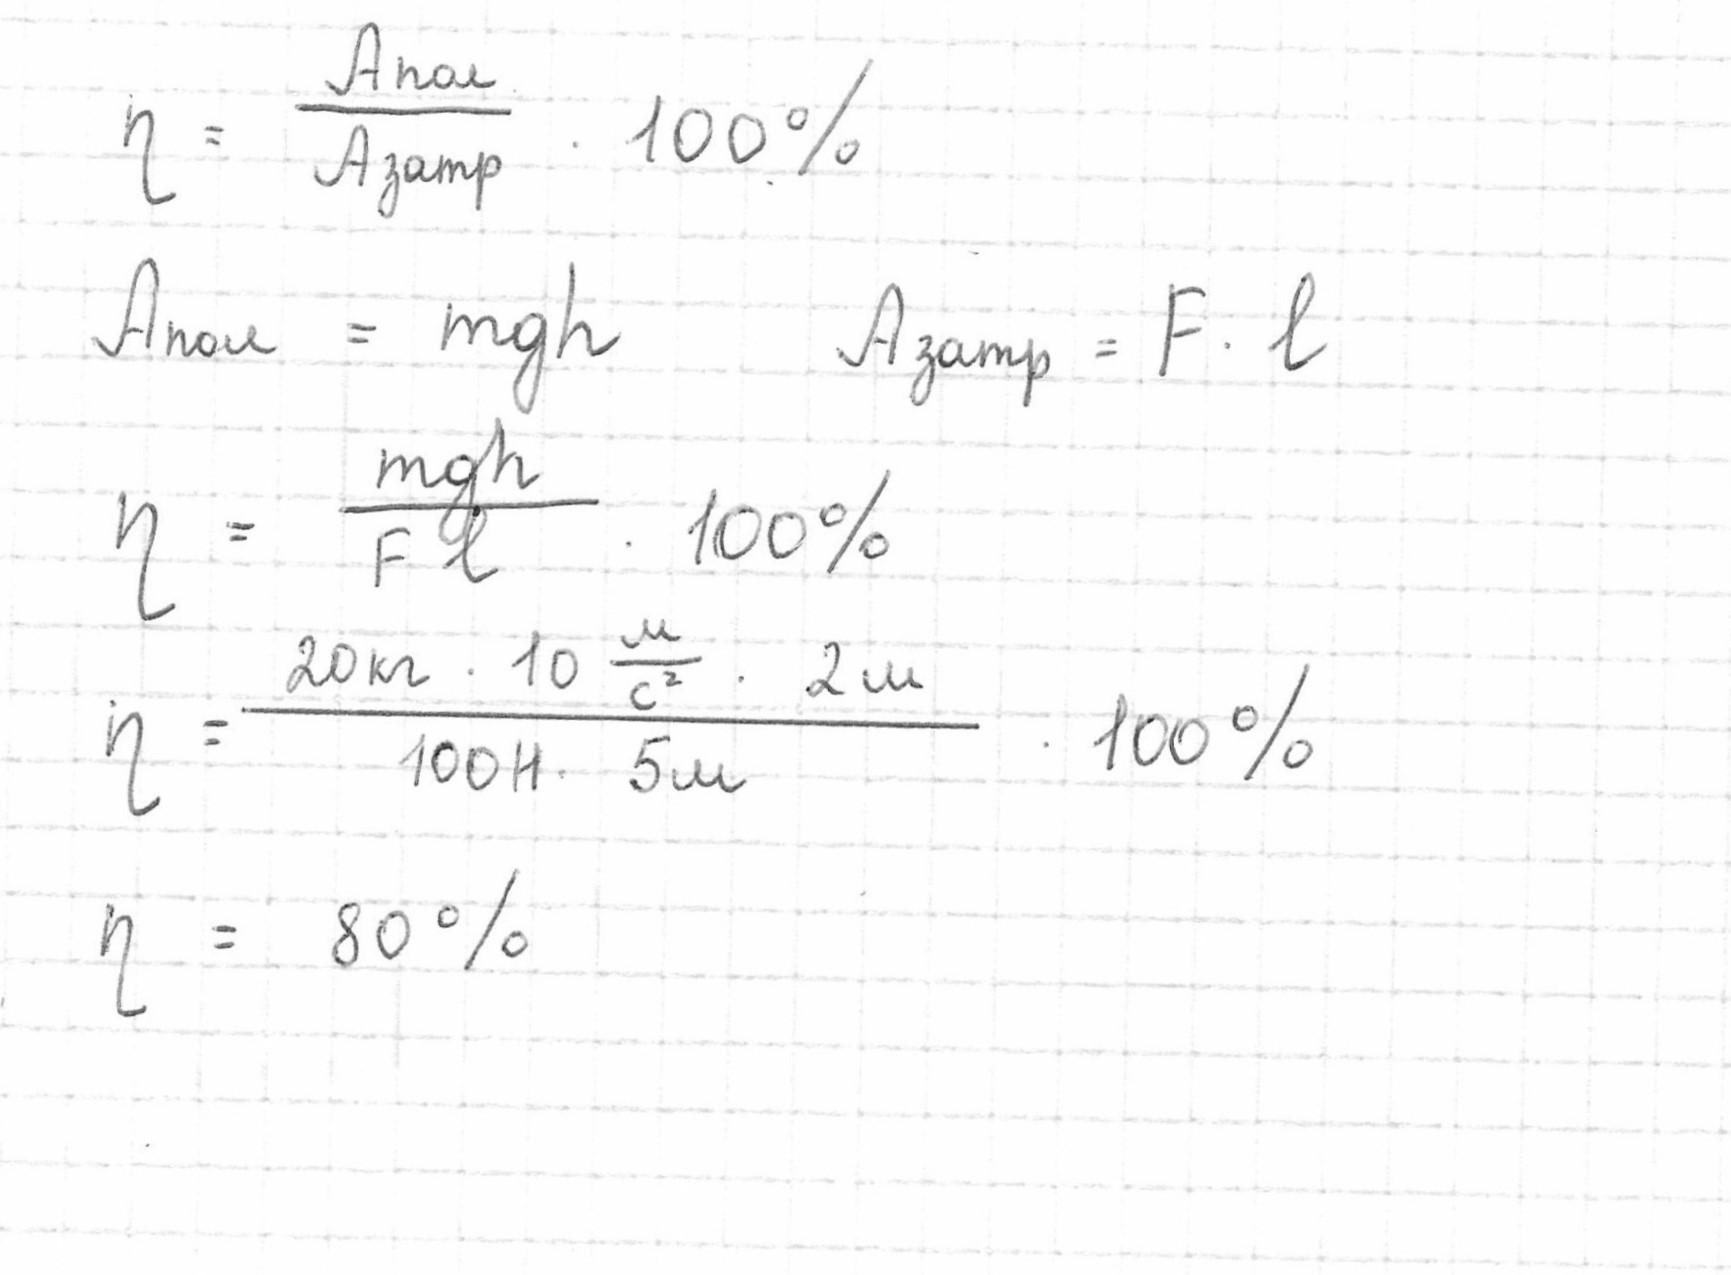 η = Апол / Азатр · 100%
Апол = mgh Азатр = F · l
η = mgh / F l · 100%
η = 20кг · 10 м/с² · 2м / 100Н · 5м · 100%
η = 80%